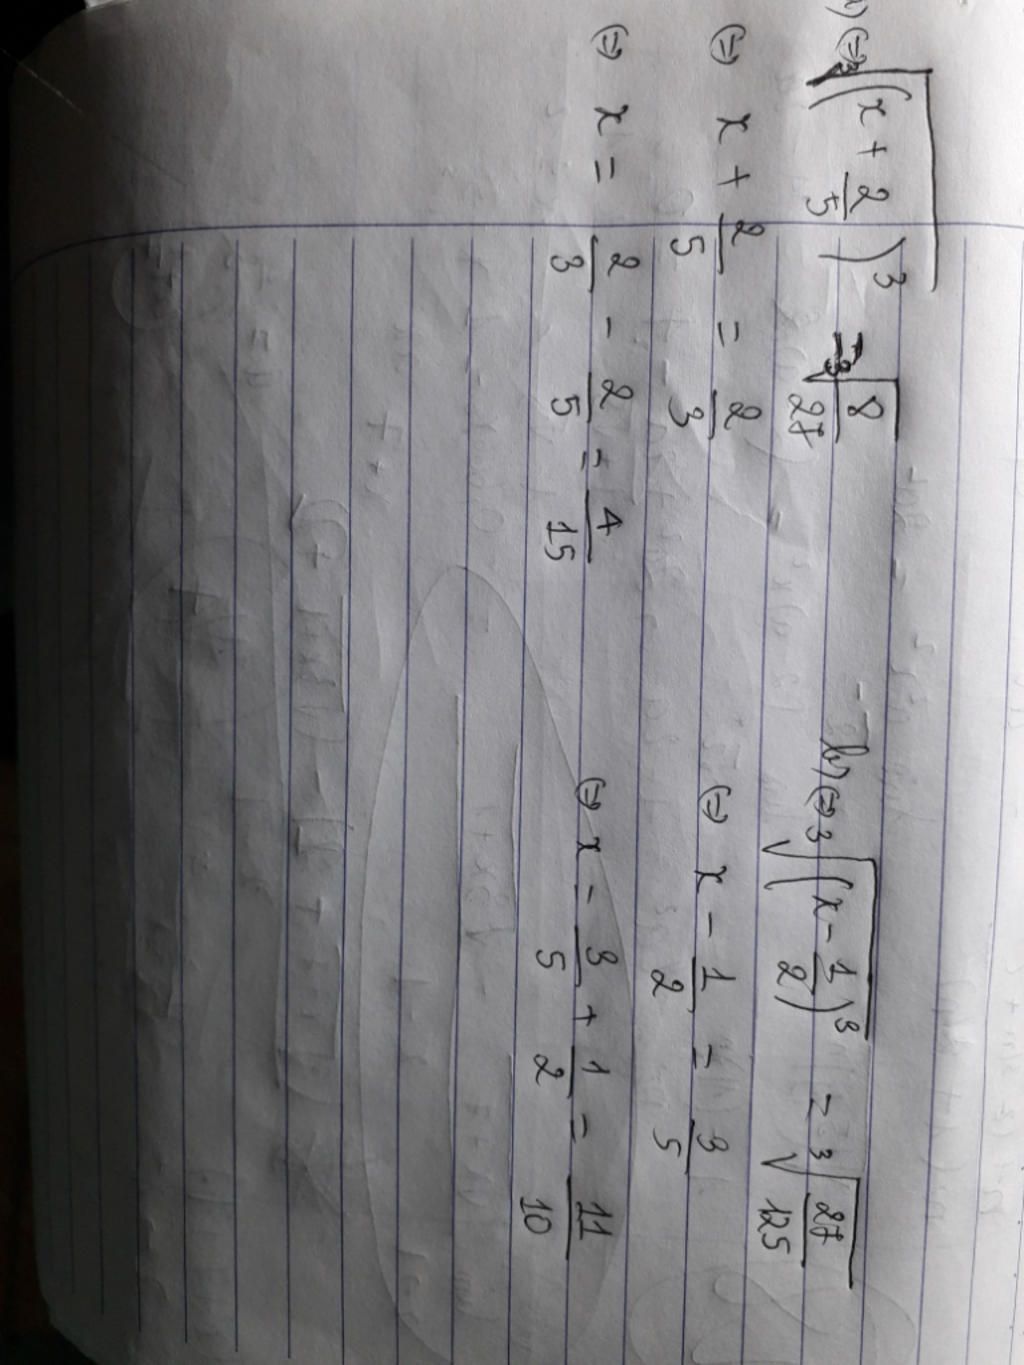 a) (=) ³√(x + 2/5)³ = ³√8/27
(=) x + 2/5 = 2/3
(=) x = 2/3 - 2/5 = 4/15
b) (=) ³√(x - 1/2)³ = ³√27/125
(=) x - 1/2 = 3/5
(=) x = 3/5 + 1/2 = 11/10